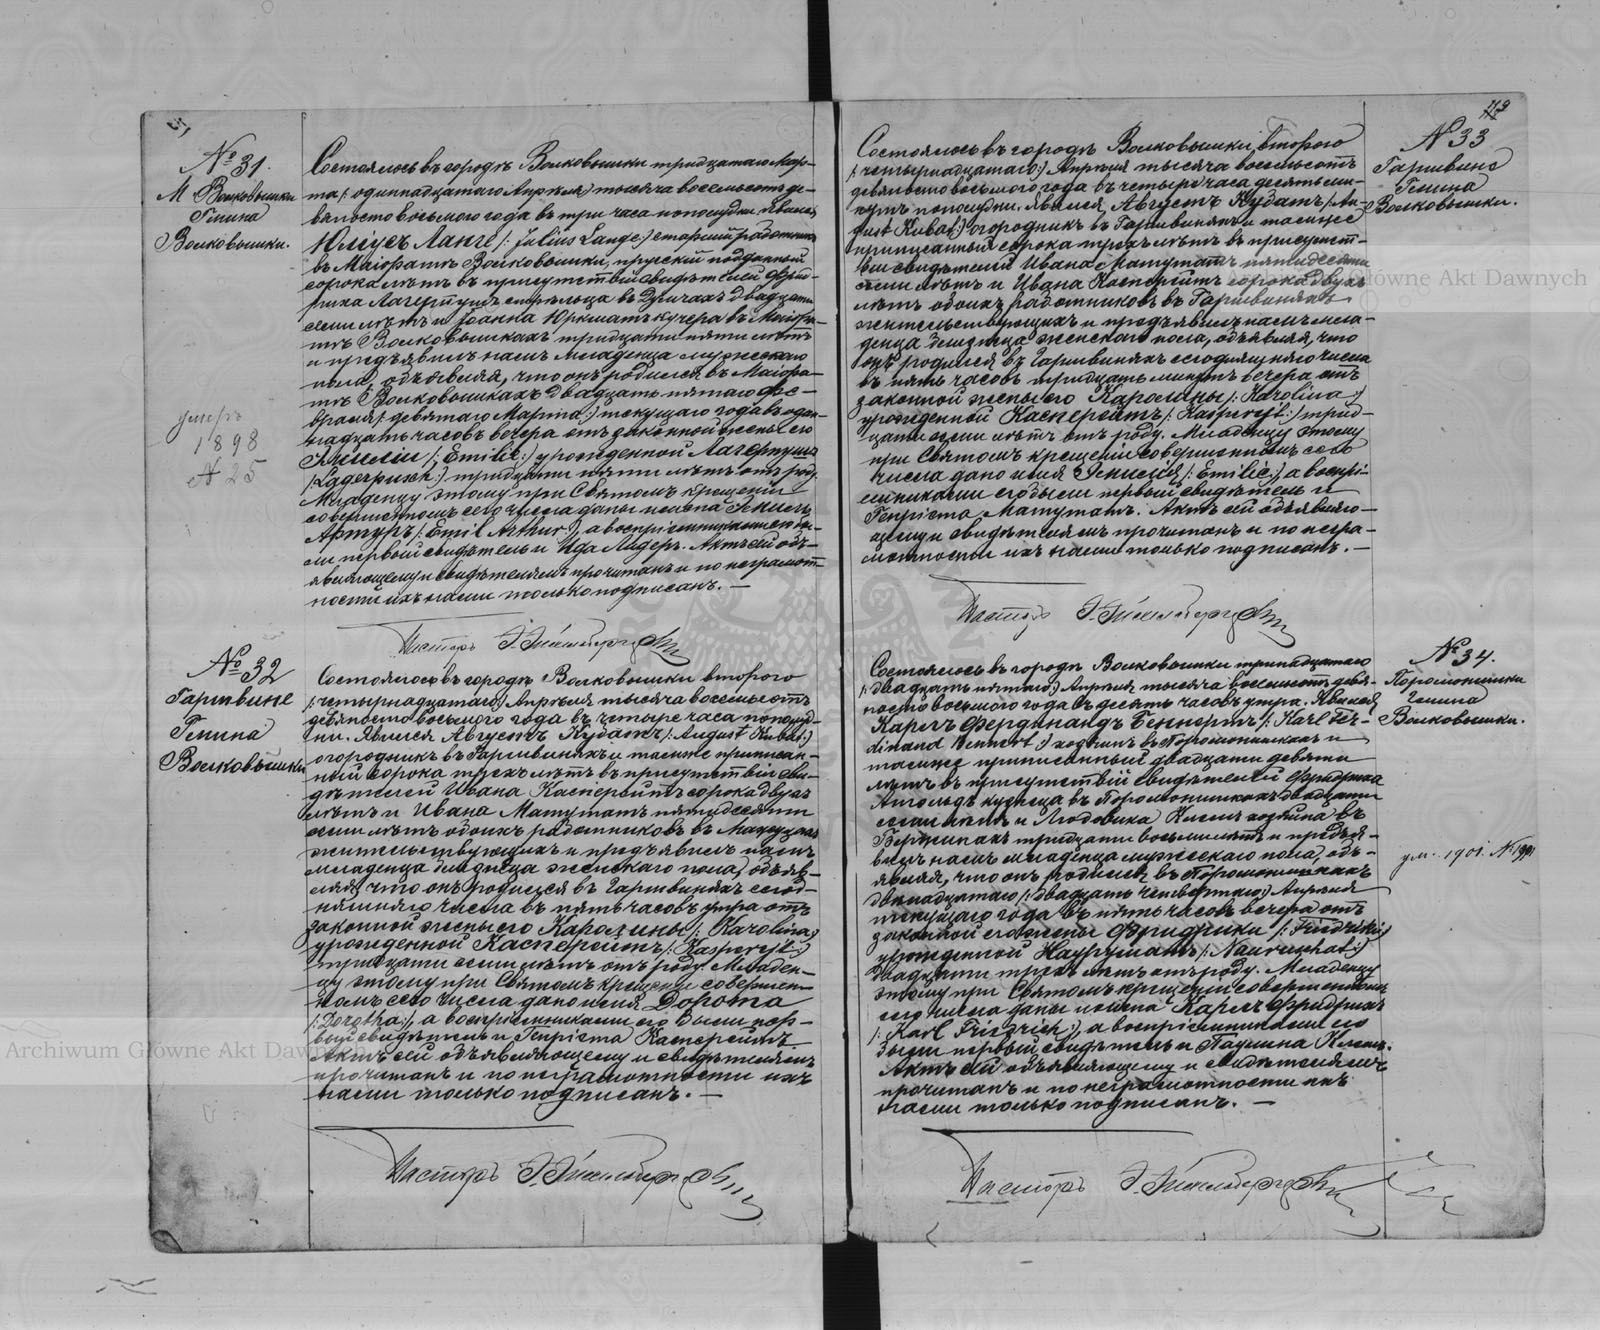 № 31.
М Волковышки
Гмина
Волковышки.
умеръ
1898
№ 25
Состоялось въ городѣ Волковышки тридцатаго Мар-
та /: одиннадцатаго Апрѣля :/ тысяча восемьсотъ де-
вяносто восьмого года въ три часа пополудни. Явился
Юліусъ Ланге /: Julius Lange :/ старшій работникъ
въ Маіоратѣ Волковышки, прусскій подданный
сорока лѣтъ въ присутствіи свидѣтелей Фрид-
риха двадцати
семи лѣтъ и Іоанна кучера въ Маіора-
тѣ Волковышкахъ тридцати пяти лѣтъ
и предъявилъ намъ младенца мужескаго
пола, объявляя, что онъ родился въ Маіора-
тѣ Волковышкахъ двадцать пятаго Фе-
враля /: девятаго Марта :/ текущаго года въ один-
надцать часовъ вечера отъ законной жены его
Эмиліи /: Emilie :/ урожденной
тридцати пяти лѣтъ отъ роду.
Младенцу этому при Святомъ крещеніи
совершенномъ сего числа даны имена Эмиль
Артуръ /: Emil Arthur :/, а воспріемниками его бы-
ли первый свидѣтель и Ида Лидеръ. Актъ сей объ-
являющему и свидѣтелямъ прочитанъ и по неграмот-
ности ихъ нами только подписанъ. —
Пасторъ
№ 32
Гаршвине
Гмина
Волковышки
Состоялось въ городѣ Волковышки второго
/: четырнадцатаго :/ Апрѣля тысяча восемьсотъ
девяносто восьмого года въ четыре часа пополуд-
ни. Явился Августъ Кубатъ /: August Kubat :/
огородникъ въ Гаршвиняхъ и тамже приписан-
ный сорока трехъ лѣтъ въ присутствіи сви-
дѣтелей Ивана Касперейтъ сорока двухъ
лѣтъ и Ивана Матутатъ пятидесяти
семи лѣтъ обоихъ работниковъ въ
жительствующихъ и предъявилъ намъ
младенца близнеца женскаго пола, объяв-
ляя, что онъ родился въ Гаршвиняхъ сегод-
няшняго числа въ пять часовъ утра отъ
законной жены его Каролины /: Karolina :/
урожденной Касперейтъ /: Kasperejt :/
тридцати семи лѣтъ отъ роду. Младен-
цу этому при Святомъ крещеніи совершен-
номъ сего числа дано имя Дорота
/: Dorotha :/, а воспріемниками его были пер-
вый свидѣтель и Генріэта Касперейтъ.
Актъ сей объявляющему и свидѣтелямъ
прочитанъ и по неграмотности ихъ
нами только подписанъ. —
Пасторъ
112
№ 33
Гаршвине
Гмина
Волковышки.
Состоялось въ городѣ Волковышки, второго
/: четырнадцатаго :/ Апрѣля тысяча восемьсотъ
девяносто восьмого года въ четыре часа десять ми-
нутъ пополудни. Явился Августъ Кубатъ /: Au-
gust Kubat :/ огородникъ въ Гаршвиняхъ и тамже
приписанный сорока трехъ лѣтъ въ присутст-
віи свидѣтелей Ивана Матутатъ пятидесяти
семи лѣтъ и Ивана Касперейтъ сорока двухъ
лѣтъ обоихъ работниковъ въ Гаршвиняхъ
жительствующихъ и предъявилъ намъ мла-
денца близнеца женскаго пола, объявляя, что
онъ родился въ Гаршвиняхъ сегодняшняго числа
въ пять часовъ тридцать минутъ вечера отъ
законной жены его Каролины /: Karolina :/
урожденной Касперейтъ /: Kasperejt :/ трид-
цати семи лѣтъ отъ роду. Младенцу этому
при Святомъ крещеніи совершенномъ сего
числа дано имя Эмилія /: Emilie :/, а воспрі-
емниками его были первый свидѣтель и
Генріэта Матутатъ. Актъ сей объявляю-
щему и свидѣтелямъ прочитанъ и по негра-
мотности ихъ нами только подписанъ. —
Пасторъ
№ 34.
Поромонишки
Гмина
Волковышки.
ум. 1901.
Состоялось въ городѣ Волковышки тринадцатаго
/: двадцать пятаго :/ Апрѣля тысяча восемьсотъ девя-
носто восьмого года въ десять часовъ утра. Явился
Карлъ Фердинандъ Беннертъ /: Karl Fer-
dinand Bennert :/ въ Поромонишкахъ и
тамже приписанный двадцати девяти
лѣтъ въ присутствіи свидѣтелей Фридриха
кузнеца въ Поромонишкахъ двадцати
семи лѣтъ и Людовика хозяина въ
тридцати восьми лѣтъ и предъя-
вилъ намъ младенца мужескаго пола, объ-
являя, что онъ родился въ Поромонишкахъ
двѣнадцатаго /: двадцать четвертаго :/ Апрѣля
текущаго года въ пять часовъ вечера отъ
законной его жены Фридрики /: Fridriki :/
урожденной
двадцати трехъ лѣтъ отъ роду. Младенцу
этому при Святомъ крещеніи совершенномъ
сего числа даны имена Карлъ Фридрихъ
/: Karl Friedrich :/, а воспріемниками его
были первый свидѣтель и Паулина
Актъ сей объявляющему и свидѣтелямъ
прочитанъ и по неграмотности ихъ
нами только подписанъ. —
Пасторъ
Archiwum Główne Akt Dawnych
Archiwum Główne Akt Dawnych